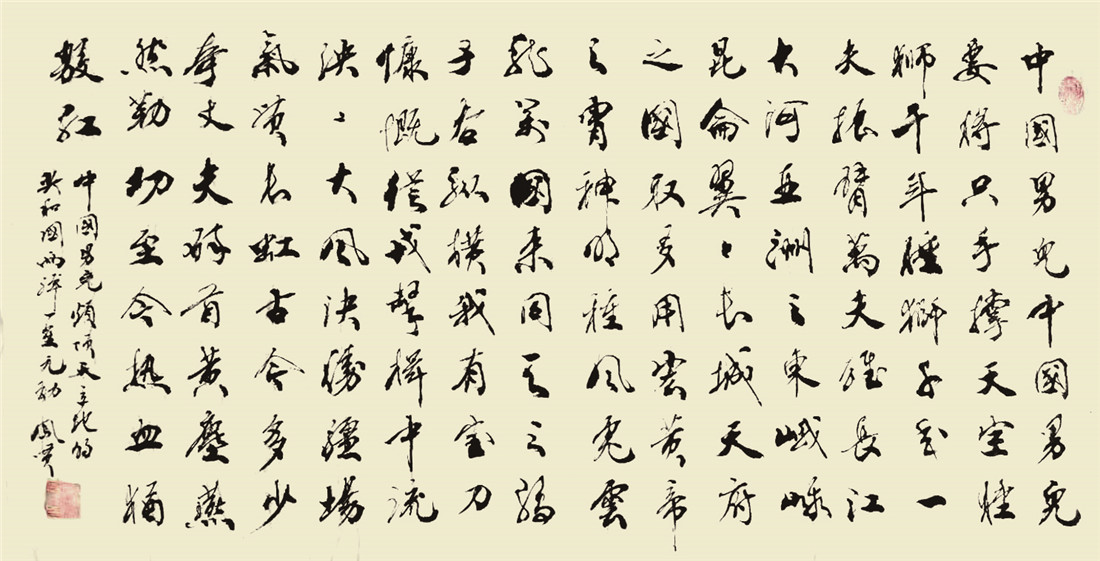 中國男兒中國男兒
要將只手撐天空睡
獅千年睡獅千年一
夫振臂萬夫雄長江
大河亞洲之東峨峨
昆侖翼〻長城天府
之國取多用宏黃帝
之胄神明種風虎雲
龍萬國來同天之驕
子吾縱橫我有寶刀
慷慨從戎擊楫中流
泱〻大風決勝疆場
氣貫長虹古今多少
奇丈夫碎首黃塵燕
然勒功至今熱血猶
殷紅
中國男兒頌頂天立地的
共和國兩彈一星元勛